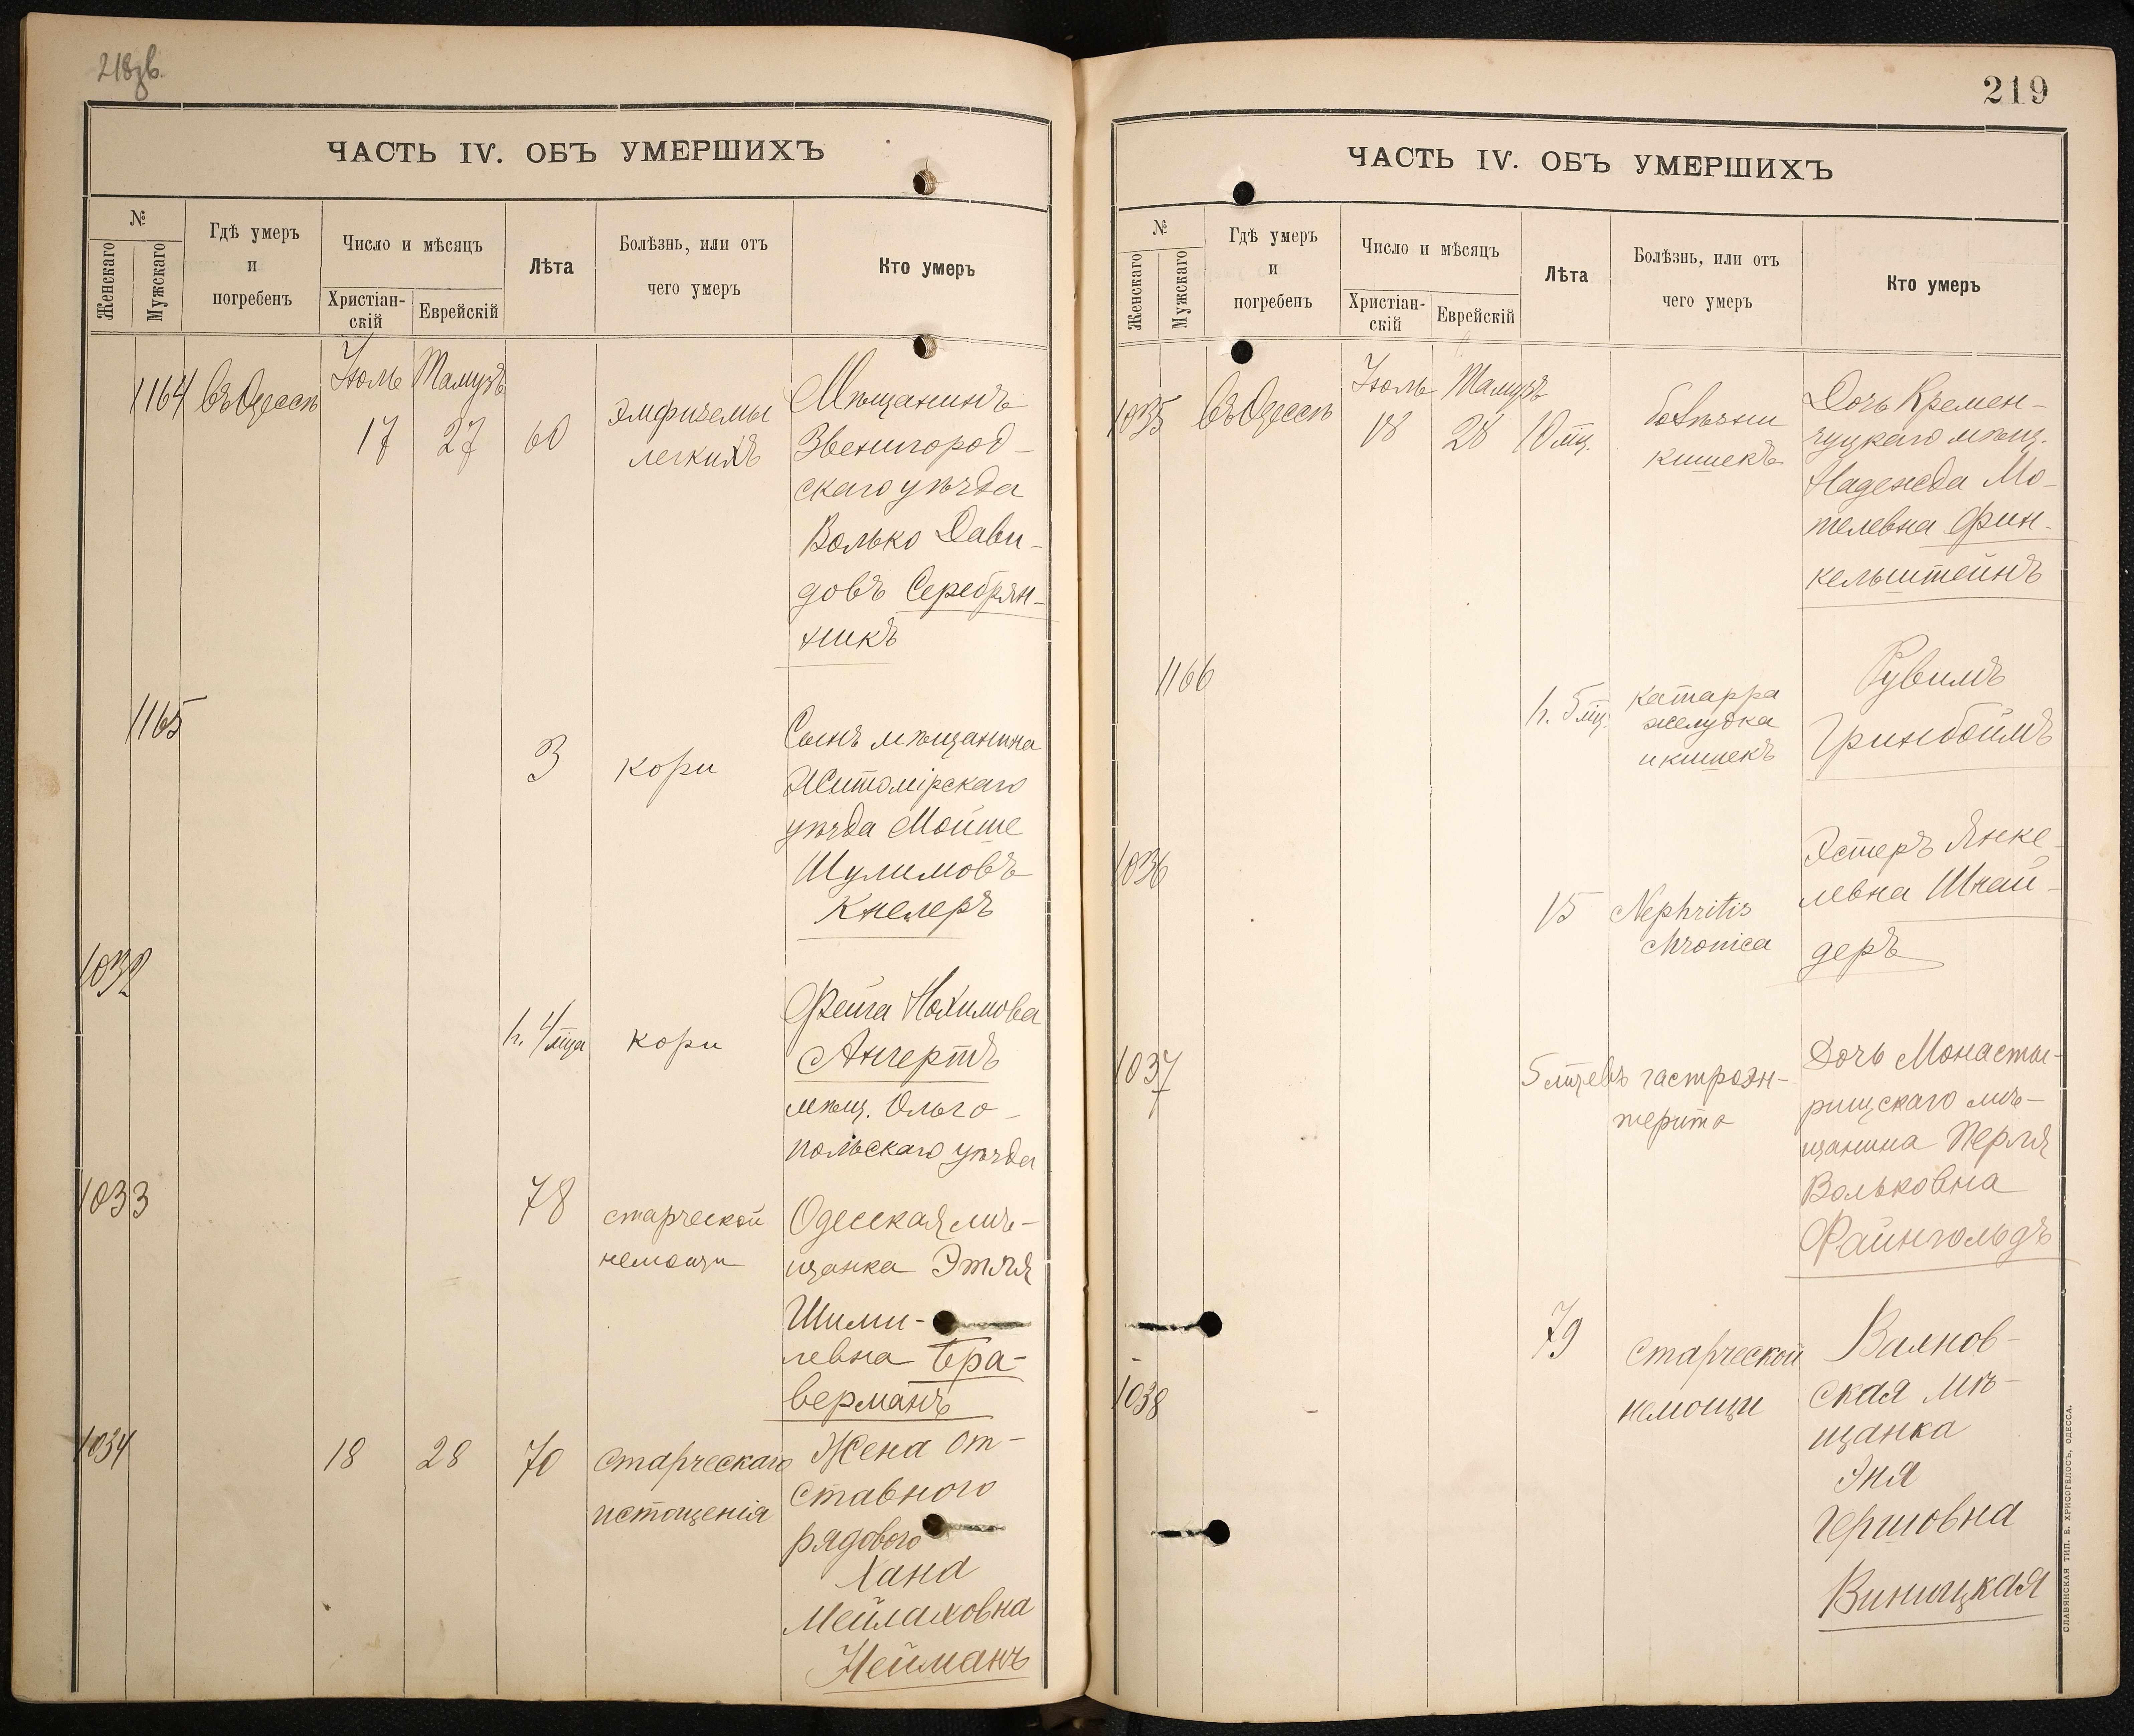 218зв.
ЧАСТЬ IV. ОБЪ УМЕРШИХЪ
№
Женскаго
Мужскаго
Гдѣ умеръ
и
погребенъ
Число и мѣсяцъ
Христіан-
скій
Еврейскій
Лѣта
Болѣзнь, или отъ
чего умеръ
Кто умеръ
1164 въ Одессѣ Іюль Тамузъ
17 27 60
эмфиземы
легкихъ
Мѣщанинъ
Звенигород-
скаго уѣзда
Волько Дави-
довъ Серебрян-
никъ
1165
3 кори
Сынъ мѣщанина
Житомірскаго
уѣзда Мойше
Шулимовъ
Кнелеръ
1032
н. 4/мца кори
Фейга Нохимова
Ангертъ
мѣщ. Ольго-
польскаго уѣзда
1033
78
старческой
немощи
Одесская мѣ-
щанка Этля
Шми-
левна Бра-
верманъ
1034
18 28 70
старческаго
истощенія
Жена от-
ставного
рядового
Хана
Мейлаховна
Нейманъ
219
ЧАСТЬ IV. ОБЪ УМЕРШИХЪ
№
Женскаго
Мужскаго
Гдѣ умеръ
и
погребенъ
Число и мѣсяцъ
Христіан-
скій
Еврейскій
Лѣта
Болѣзнь, или отъ
чего умеръ
Кто умеръ
1035 въ Одессѣ Іюль Тамузъ
18 28 10 мц.
болѣзни
кишекъ
Дочь Кремен-
чуцкаго мѣщ.
Надежда Мо-
телевна Фин-
кельштейнъ
1166
н. 5 мц.
катарра
желудка
и кишекъ
Рувимъ
Гринбоймъ
1036
15
Nephritis
chronica
Эстеръ Янке-
левна Шнай-
деръ
1037
5 мцевъ
гастроэн-
терита
Дочь Монасты-
рищскаго мѣ-
щанина Перля
Вольковна
Файнгольдъ
1038
79
старческой
немощи
-
ская мѣ-
щанка
Эня
Гершовна
Виницкая
СЛАВЯНСКАЯ ТИП. Е. ХРИСОГЕЛОСЪ, ОДЕССА.